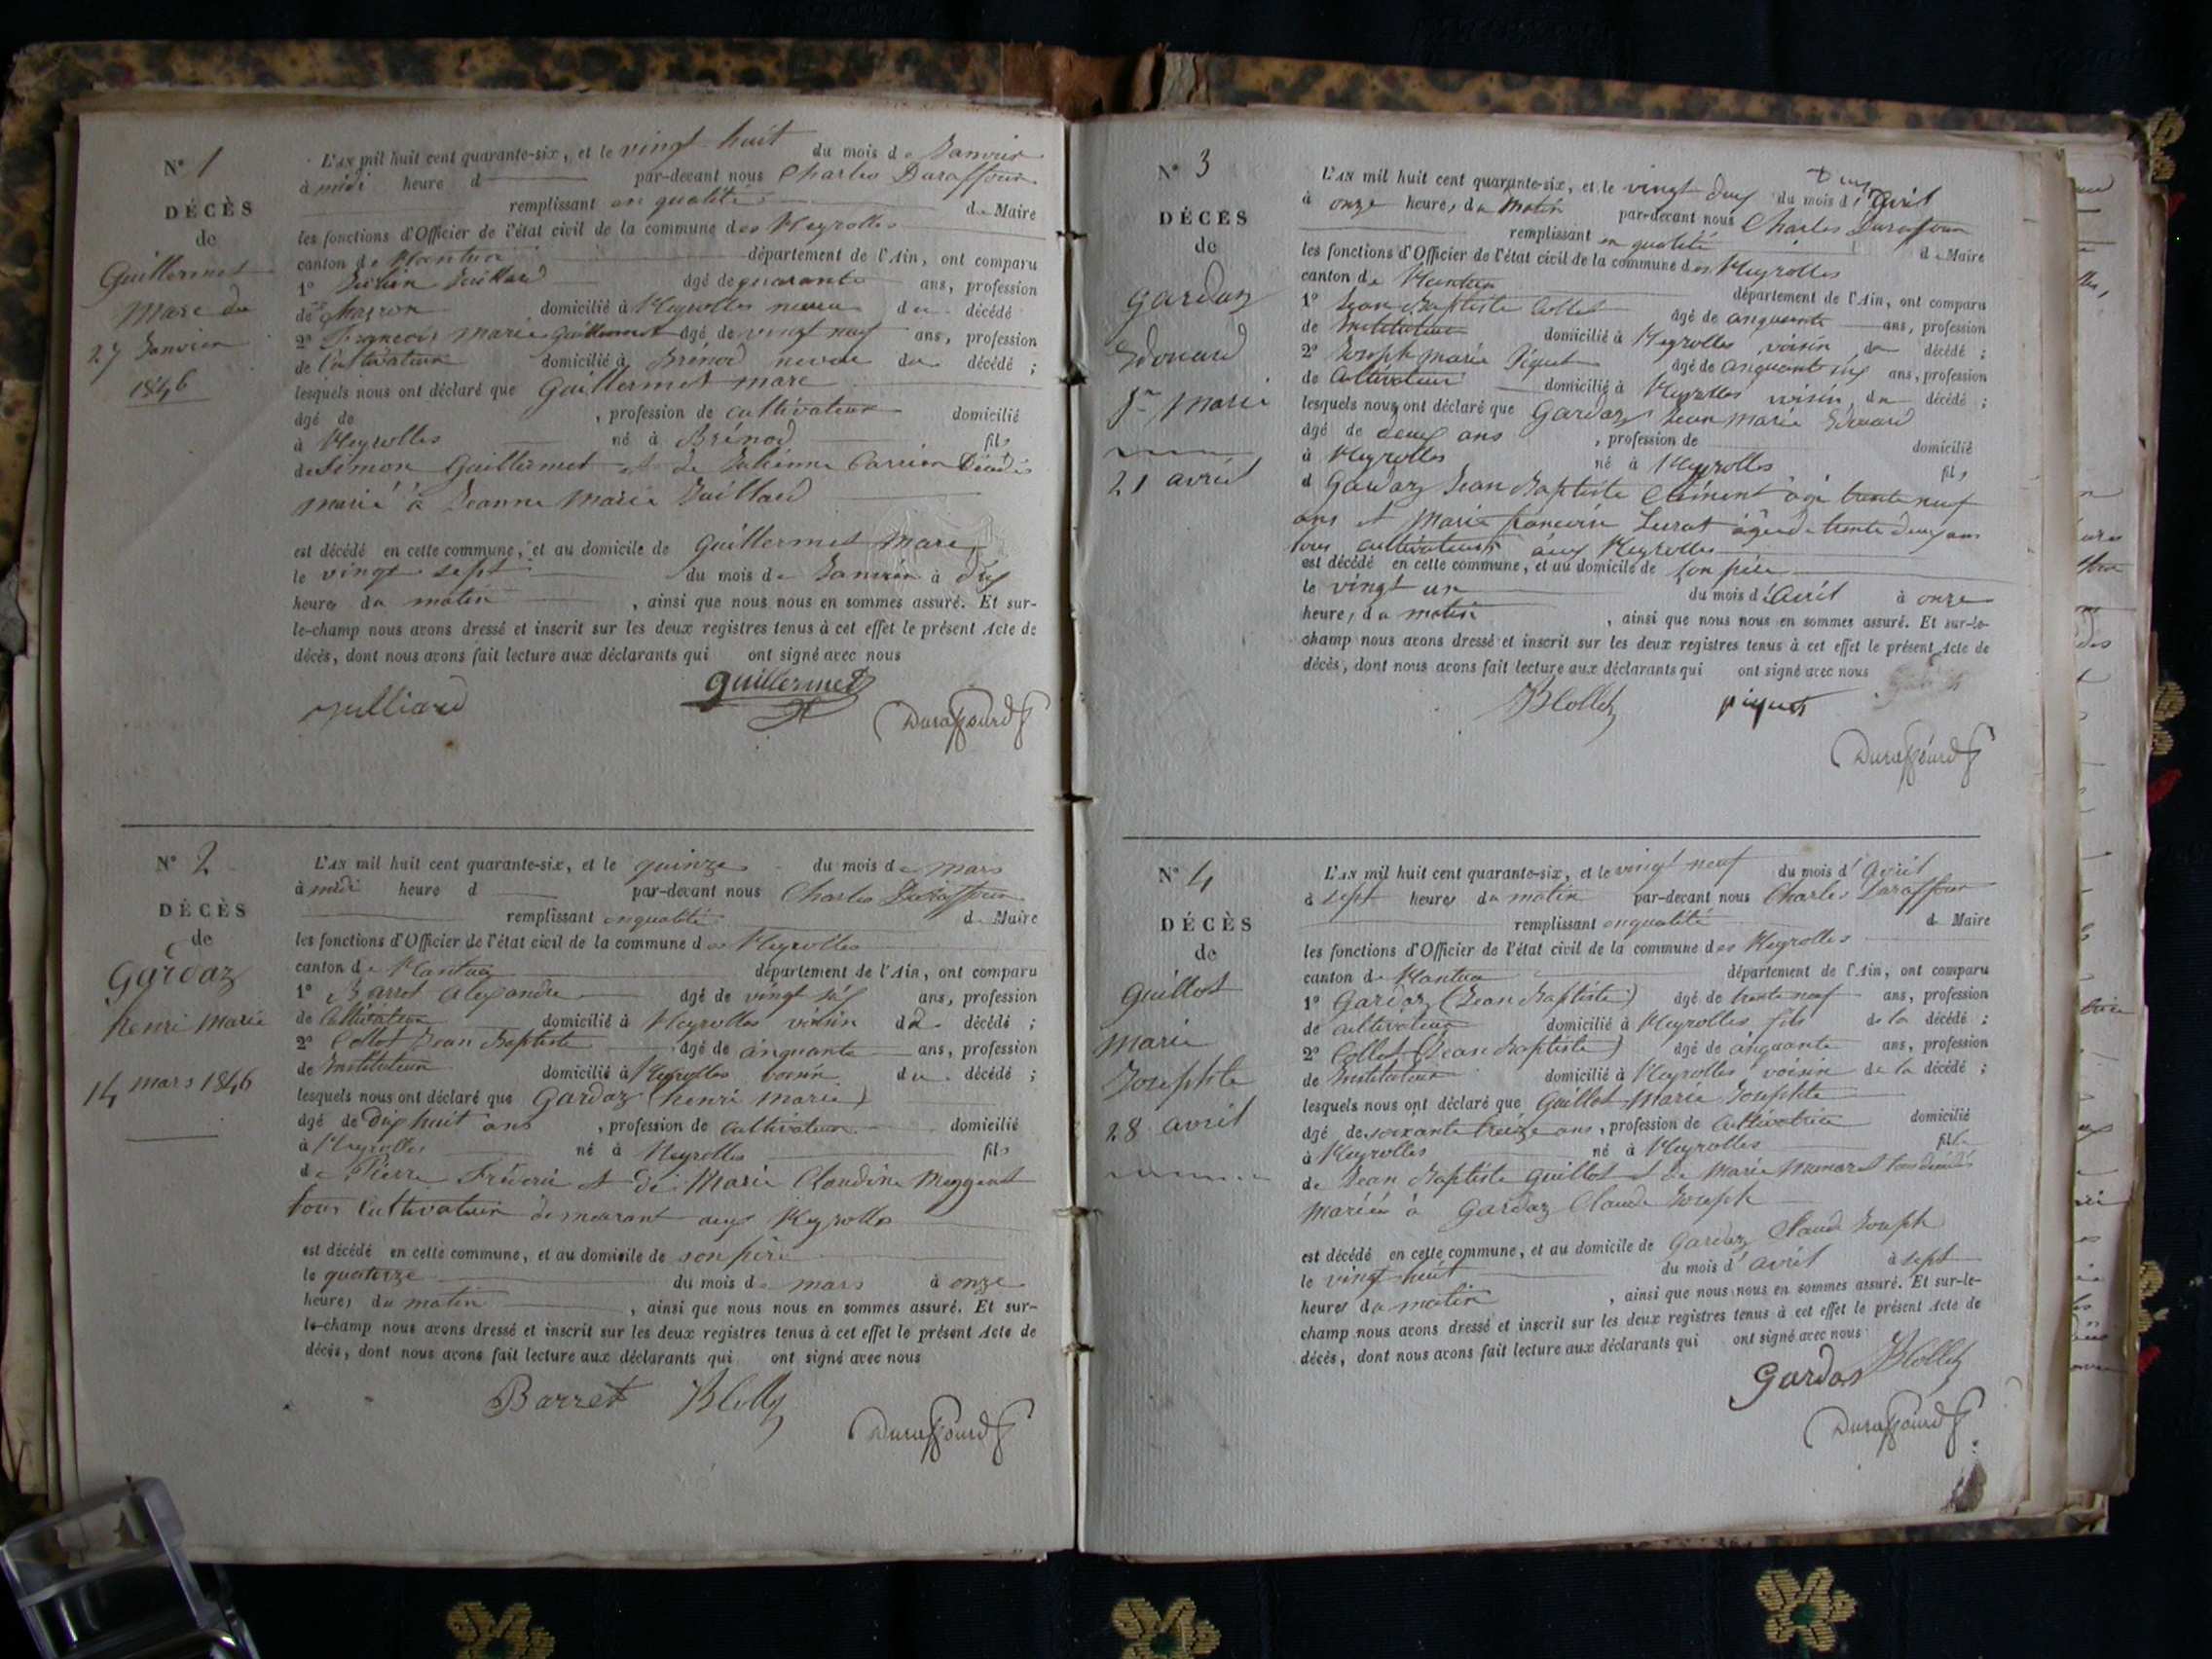 N° 1
DÉCÈS
de
Guillermet
Marc du
27 Janvier
1846
L'AN mil huit cent quarante-six, et le vingt huit du mois de Janvier
à midi heure d par-devant nous Charles Duraffour
remplissant en qualité de Maire
les fonctions d'Officier de l'état civil de la commune des Neyrolles
canton de Nantua département de l'Ain, ont comparu
1° Juillard âgé de quarante ans, profession
de Maçon domicilié à Neyrolles neveu du décédé
2° François Marie Guillermet âgé de vingt neuf ans, profession
de Cultivateur domicilié à Brénod neveu du décédé ;
lesquels nous ont déclaré que Guillermet marc
âgé de , profession de cultivateur domicilié
à Neyrolles né à Brénod fils
de Simon Guillermet et de Julienne Carrier Décédés
marié à Jeanne Marie Juillard
est décédé en cette commune, et au domicile de Guillermet Marc
le vingt sept du mois de Janvier à dix
heures du matin , ainsi que nous nous en sommes assuré. Et sur-
le-champ nous avons dressé et inscrit sur les deux registres tenus à cet effet le présent Acte de
décès, dont nous avons fait lecture aux déclarants qui ont signé avec nous
Julliard Guillermet
Duraffourd
N° 2
DÉCÈS
de
Gardaz
henri Marie
14 mars 1846
L'AN mil huit cent quarante-six, et le quinze du mois de mars
à midi heure d par-devant nous Charles Duraffour
remplissant en qualité de Maire
les fonctions d'Officier de l'état civil de la commune des Neyrolles
canton de Nantua département de l'Ain, ont comparu
1° Barret Alexandre âgé de vingt six ans, profession
de Cultivateur domicilié à Neyrolles voisin du décédé ;
2° Collet Jean Baptiste âgé de cinquante ans, profession
de Instituteur domicilié à Neyrolles voisin du décédé ;
lesquels nous ont déclaré que Gardaz (henri Marie)
âgé de dix huit ans , profession de cultivateur domicilié
à Neyrolles né à Neyrolles fils
de Pierre Fréderic et de Marie Claudine
tous Cultivateur demeurant aux Neyrolles
est décédé en cette commune, et au domicile de son père
le quatorze du mois de mars à onze
heures du matin , ainsi que nous nous en sommes assuré. Et sur-
le-champ nous avons dressé et inscrit sur les deux registres tenus à cet effet le présent Acte de
décès, dont nous avons fait lecture aux déclarants qui ont signé avec nous
Barret JBCollet
Duraffourd
N° 3
DÉCÈS
de
Gardaz
Edouard
Jn Marie
21 avril
L'AN mil huit cent quarante-six, et le vingt deux du mois d'avril
à onze heures du matin par-devant nous Charles Duraffour
remplissant en qualité de Maire
les fonctions d'Officier de l'état civil de la commune des Neyrolles
canton de Nantua département de l'Ain, ont comparu
1° Jean Baptiste Collet âgé de cinquante ans, profession
de Instituteur domicilié à Neyrolles voisin du décédé ;
2° Joseph Marie Piquet âgé de cinquante six ans, profession
de Cultivateur domicilié à Neyrolles voisin du décédé ;
lesquels nous ont déclaré que Gardaz Jean Marie Edouard
âgé de deux ans , profession de domicilié
à Neyrolles né à Neyrolles fils
d Gardaz Jean Baptiste Clément âgé trente neuf
ans et Marie françoise âgée de trente deux ans
tous cultivateurs aux Neyrolles
est décédé en cette commune, et au domicile de son père
le vingt un du mois d'avril à onze
heures du matin , ainsi que nous nous en sommes assuré. Et sur-le-
champ nous avons dressé et inscrit sur les deux registres tenus à cet effet le présent Acte de
décès, dont nous avons fait lecture aux déclarants qui ont signé avec nous
JBCollet piquet
Duraffourd
N° 4
DÉCÈS
de
Guillot
Marie
Josephte
28 avril
L'AN mil huit cent quarante-six, et le vingt neuf du mois d'avril
à sept heures du matin par-devant nous Charles Duraffour
remplissant en qualité d Maire
les fonctions d'Officier de l'état civil de la commune des Neyrolles
canton de Nantua département de l'Ain, ont comparu
1° Gardaz (Jean Baptiste) âgé de trente neuf ans, profession
de cultivateur domicilié à Neyrolles fils de la décédé ;
2° Collet (Jean Baptiste) âgé de cinquante ans, profession
de Instituteur domicilié à Neyrolles voisin de la décédé ;
lesquels nous ont déclaré que Guillot Marie Josephte
âgé de soixante treize ans , profession de Cultivatrice domicilié
à Neyrolles né à Neyrolles fille
de Jean Baptiste Guillot et de Marie tous décédés
Mariée à Gardaz Claude Joseph
est décédé en cette commune, et au domicile de Gardaz Claude Joseph
le vingt huit du mois d'avril à sept
heures du matin , ainsi que nous nous en sommes assuré. Et sur-le-
champ nous avons dressé et inscrit sur les deux registres tenus à cet effet le présent Acte de
décès, dont nous avons fait lecture aux déclarants qui ont signé avec nous
Gardas JBCollet
Duraffourd